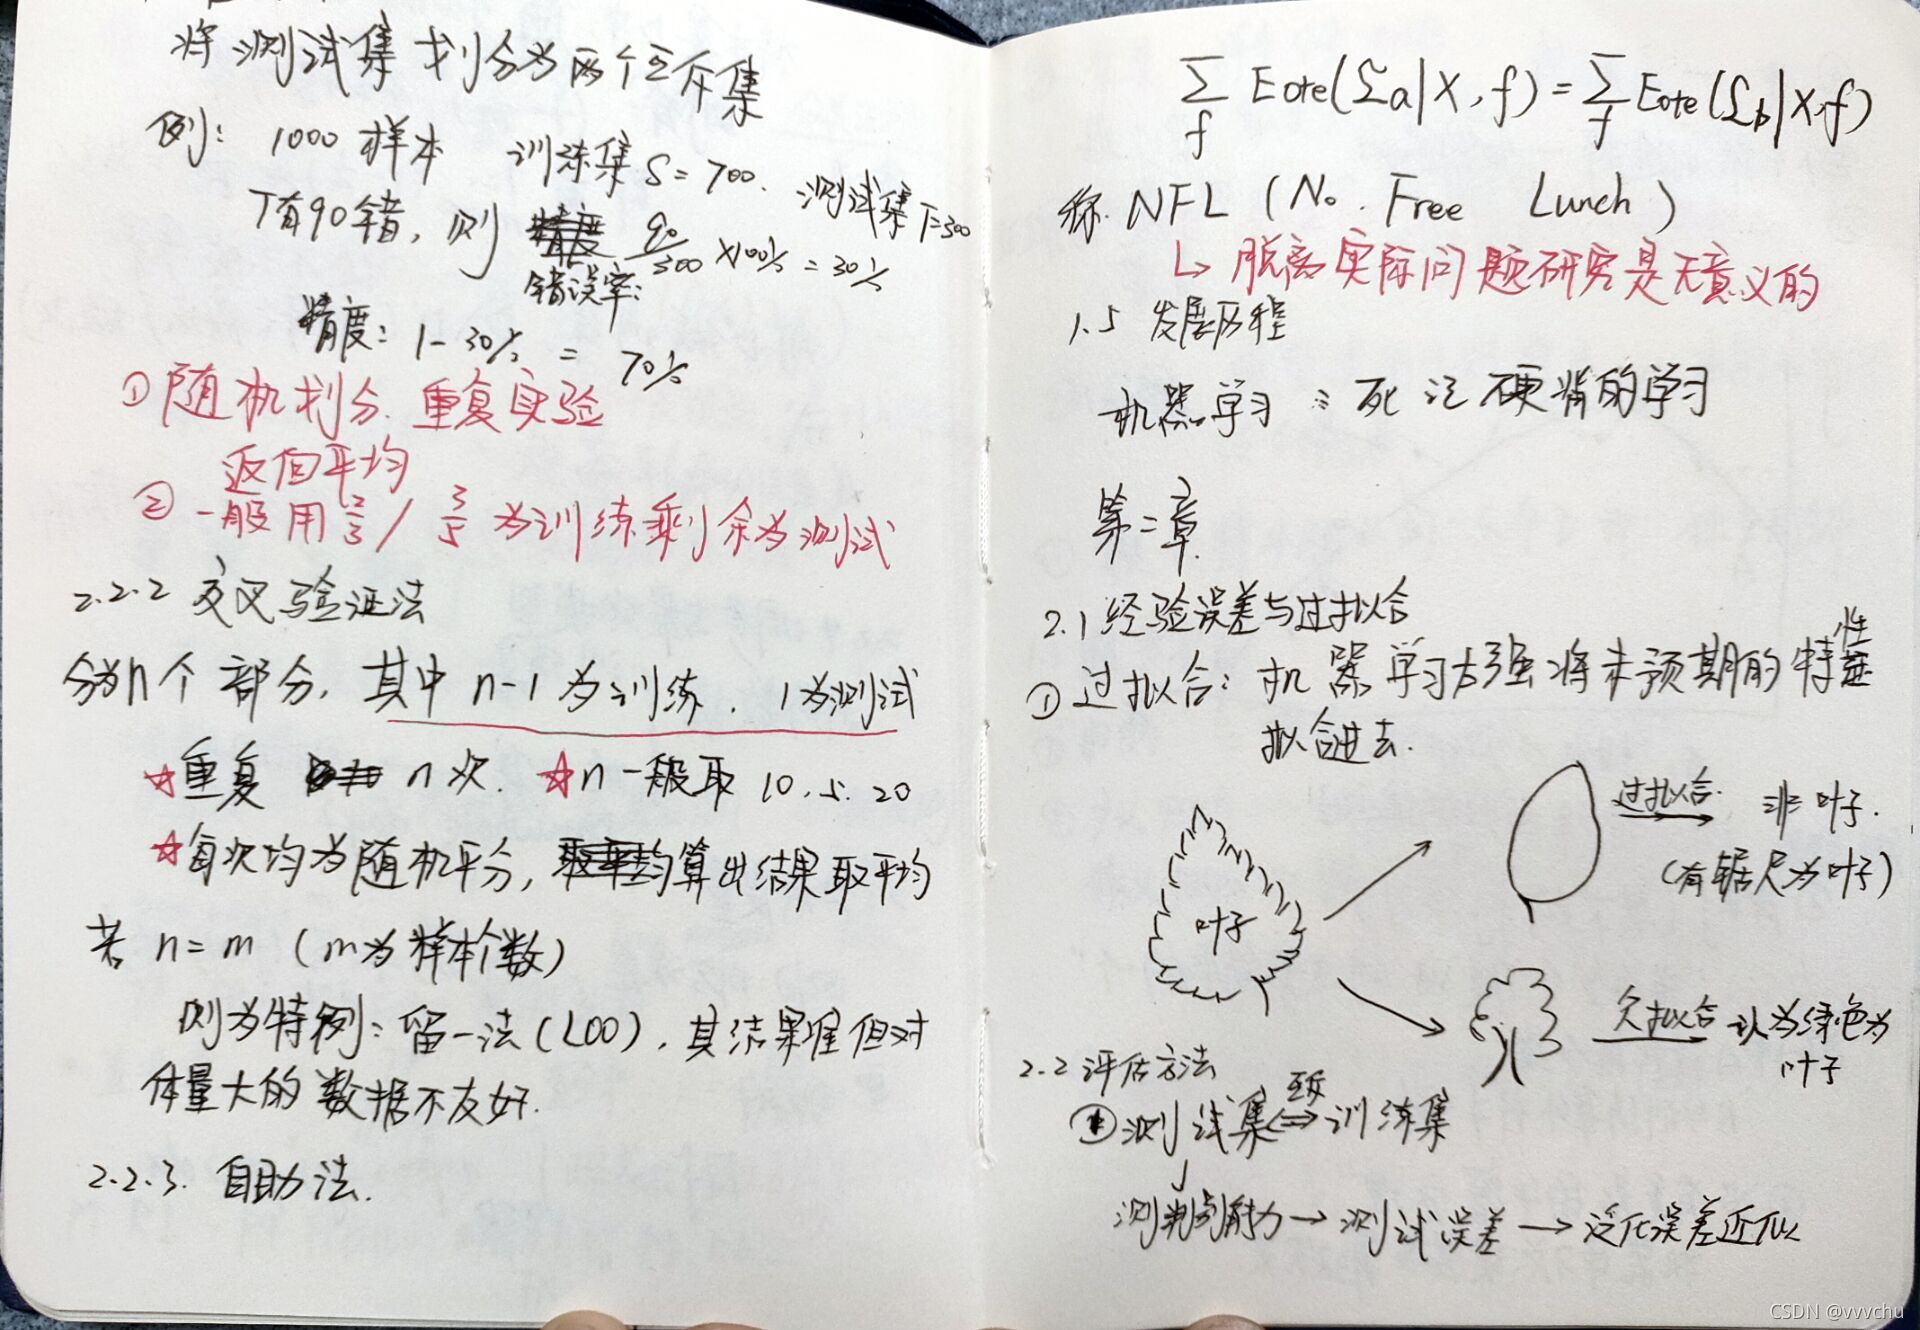 将测试集划分为两个互斥集
例: 1000样本 训练集S=700. 测试集T=300
T有90错, 则 90/300 ×100% = 30%
错误率:
精度: 1-30% = 70%
①随机划分.重复实验
返回平均
②一般用 2/3 / 3/5 为训练剩余为测试
2.2.2 交叉验证法
分为n个部分, 其中 n-1为训练. 1为测试
☆重复 n次. ☆n一般取 10.5.20
☆每次均为随机平分, 均算出结果取平均
若 n=m (m为样本个数)
则为特例: 留一法(LOO), 其结果准但对
体量大的数据不友好.
2.2.3. 自助法.
∑f Eote(£a|X,f)=∑f Eote(£b|X,f)
称. NFL (No. Free Lunch)
↳ 脱离实际问题研究是无意义的
1.5 发展历程
机器学习 : 死记硬背的学习
第二章.
2.1 经验误差与过拟合
①过拟合: 机器学习太强将未预期的特性
拟合进去.
叶子
过拟合. → 非叶子.
(有锯尺为叶子)
欠拟合 → 认为绿色为
叶子
2.2 评估方法
①测试集 ⇔ 训练集
互斥
↓
测判别能力→测试误差→泛化误差近似
CSDN @vvvchu